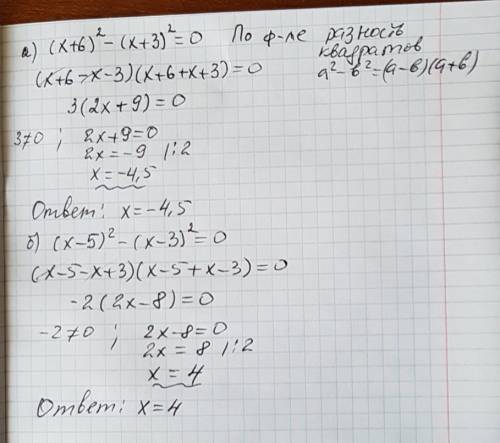 а) (x+6)² - (x+3)² = 0 По ф-ле разность
квадратов
a² - b² = (a-b)(a+b)
(x+6-x-3)(x+6+x+3) = 0
3(2x+9) = 0
3≠0 ; 2x+9=0
2x = -9 |:2
x = -4,5
Ответ: x = -4,5
б) (x-5)² - (x-3)² = 0
(x-5-x+3)(x-5+x-3) = 0
-2(2x-8) = 0
-2≠0 ; 2x-8=0
2x = 8 |:2
x = 4
Ответ: x = 4